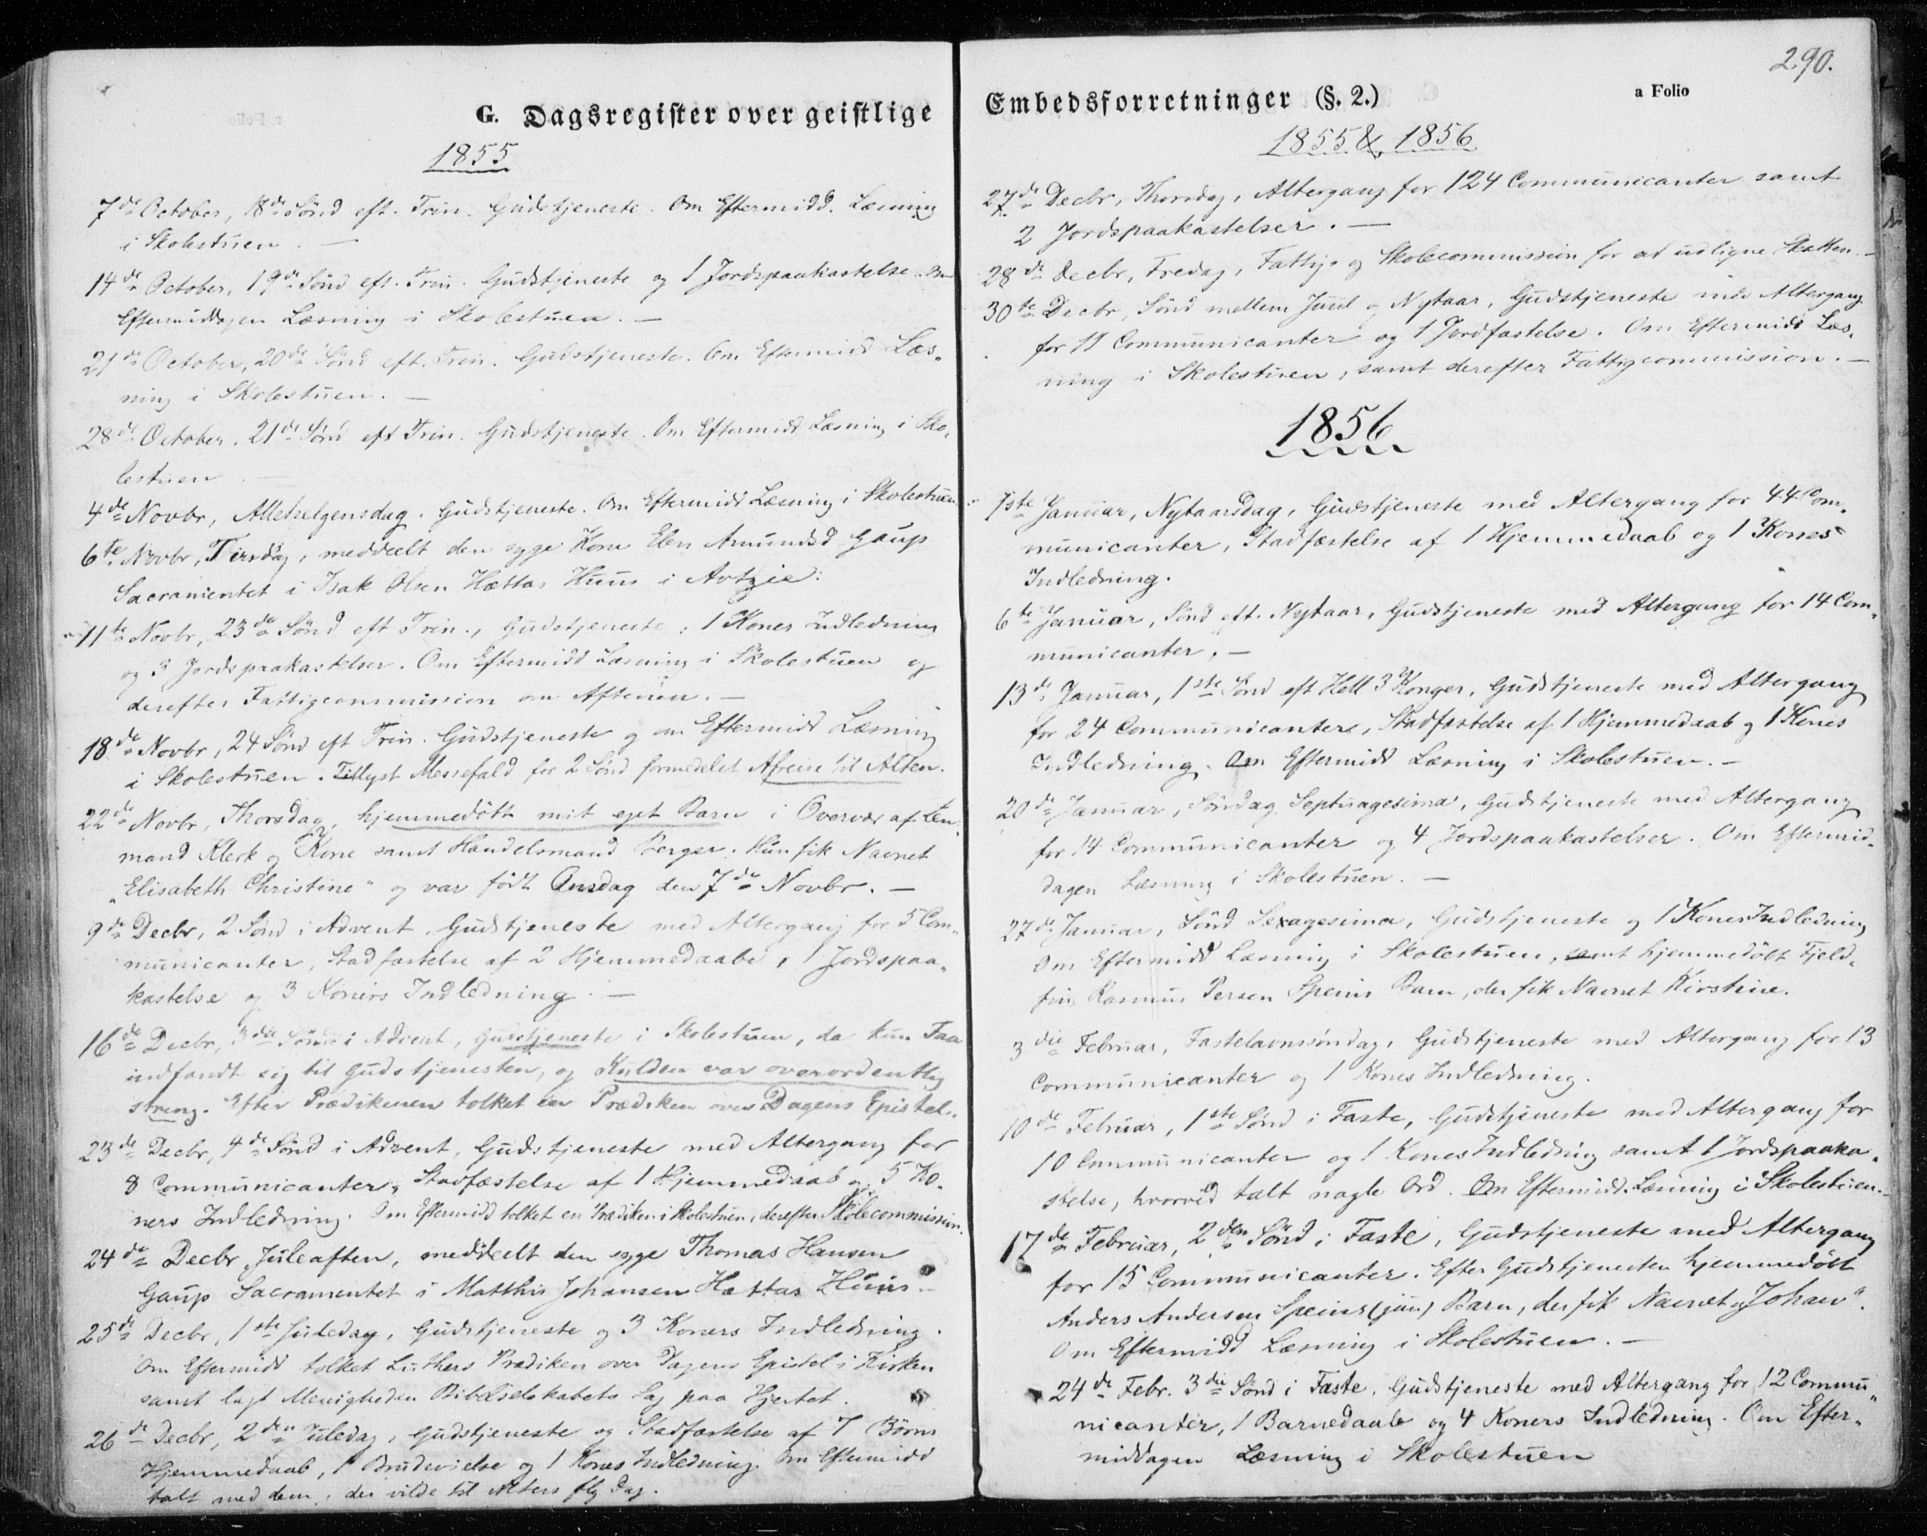 G. Dagsregister over geistlige
1855
7de October, 18de Sønd eft. Trin. Gudstjeneste. Om Eftermidd. Læsning
i Skolestuen. —
14de October, 19de Sønd eft. Trin. Gudstjeneste og 1 Jordspaakastelse. Om
Eftermiddagen Læsning i Skolestuen. —
21de October, 20de Sønd eft. Trin. Gudstjeneste. Om Eftermidd Læs-
ning i Skolestuen. —
28de October, 21de Sønd eft Trin. Gudstjeneste. Om Eftermidd Læsning i Sko-
lestuen
4de Novbr, Allehelgensdag. Gudstjeneste. Om Eftermidd Læsning i Skolestuen
6te Novbr, Tirsdag, meddeelt den syge Kone Elen Amundsd Gaup
Sacramentet i Isak Olsen Hættas Huus i Avtzie:
11te Novbr, 23de Sønd eft Trin., Gudstjeneste, 1 Kones Indledning
og 3 Jordspaakastelser. Om Eftermidd Læsning i Skolestuen og
derefter Fattigcommission om Aftenen. —
18de Novbr, 24 Sønd eft Trin. Gudstjeneste og om Eftermidd Læsning
i Skolestuen. Tillyst Messefald for 2 Sønd formedelst Afreise til Alten.
22de Novbr, Thorsdag, hjemmedøbt mit eget Barn i Overvær af Len-
mand Klerk og Kone samt Handelsmand Berger. Hun fik Navnet
"Elisabeth Christine" og var født Onsdag den 7de Novbr. —
9de Decbr, 2 Sønd i Advent. Gudstjeneste med Altergang for 5 Com-
municanter, Stadfæstelse af 2 Hjemmedaabe, 1 Jordspaa-
kastelse og 3 Koners Indledning. —
16de Decbr, 3die Sønd i Advent, Gudstjeneste i Skolestuen, da kun Faa
indfandt sig til Gudstjenesten, og Kulden var overordentlig
streng. Efter Prædikenen tolket en Prædiken over Dagens Epistel.
23de Decbr, 4de Sønd i Advent, Gudstjeneste med Altergang for
8 Communicanter, Stadfæstelse af 1 Hjemmedaab og 5 Ko-
ners Indledning. Om Eftermidd tolket en Prædiken i Skolestuen, derefter Skolecommission.
24de Decbr Juleaften, meddeelt den syge Thomas Hansen
Gaup Sacramentet i Matthis Johansen Hættas Huus. —
25de Decbr, 1ste Juledag, Gudstjeneste og 3 Koners Indledning.
Om Eftermidd tolket Luthers Prædiken over Dagens Epistel i Kirken
samt lagt Menigheden Bibelselskabets Sag paa Hjertet.
26de Decbr, 2den Juledag, Gudstjeneste og Stadfæstelse af 7 Børns
Hjemmedaab, 1 Brudevielse og 1 Kones Indledning. Om Eftermidd
talt med dem, der vilde til Alters flg Dag.
290.
Embedsforretninger (§. 2.)
a Folio
1855 & 1856
27de Decbr, Thorsdag, Altergang for 124 Communicanter samt
2 Jordspaakastelser. —
28de Decbr, Fredag, Fattig- og Skolecommission for at udligne Skatten. —
30te Decbr, Sønd mellem Juul og Nytaar, Gudstjeneste med Altergang
for 11 Communicanter og 1 Jordfæstelse. Om Eftermidd Læs-
ning i Skolestuen, samt derefter Fattigcommission. —
1856
1ste Januar, Nytaarsdag, Gudstjeneste med Altergang for 44 Com-
municanter, Stadfæstelse af 1 Hjemmedaab og 1 Kones
Indledning.
6te Januar, Sønd eft. Nytaar, Gudstjeneste med Altergang for 14 Com-
municanter. —
13de Januar, 1ste Sønd eft Hell 3 Konger, Gudstjeneste med Altergang
for 24 Communicanter, Stadfæstelse af 1 Hjemmedaab og 1 Kones
Indledning. Om Eftermidd Læsning i Skolestuen. —
20de Januar, Søndag Septuagesima, Gudstjeneste med Altergang
for 14 Communicanter og 4 Jordspaakastelser. Om Eftermid-
dagen Læsning i Skolestuen. —
27de Januar, Sønd Sexagesima, Gudstjeneste og 1 Kones Indledning
Om Eftermidd Læsning i Skolestuen, samt hjemmedøbt Fjeld-
fin Rasmus Persen Speins Barn, der fik Navnet Kirstine.
3die Februar, Fastelavnssøndag, Gudstjeneste med Altergang for 13
Communicanter og 1 Kones Indledning.
10de Februar, 1ste Sønd i Faste, Gudstjeneste med Altergang for
10 Communicanter og 1 Kones Indledning samt 1 Jordspaaka-
stelse, hvorved talt nogle Ord. Om Eftermidd. Læsning i Skolestuen. —
17de Februar, 2den Sønd i Faste, Gudstjeneste med Altergang
for 15 Communicanter. Efter Gudstjenesten hjemmedøbt
Anders Andersen Speins (jun) Barn, der fik Navnet "Johan".
Om Eftermidd Læsning i Skolestuen. —
24de Febr. 3die Sønd i Faste, Gudstjeneste med Altergang for 12 Commu-
nicanter, 1 Barnedaab og 4 Koners Indledning. Om Efter-
middagen Læsning i Skolestuen